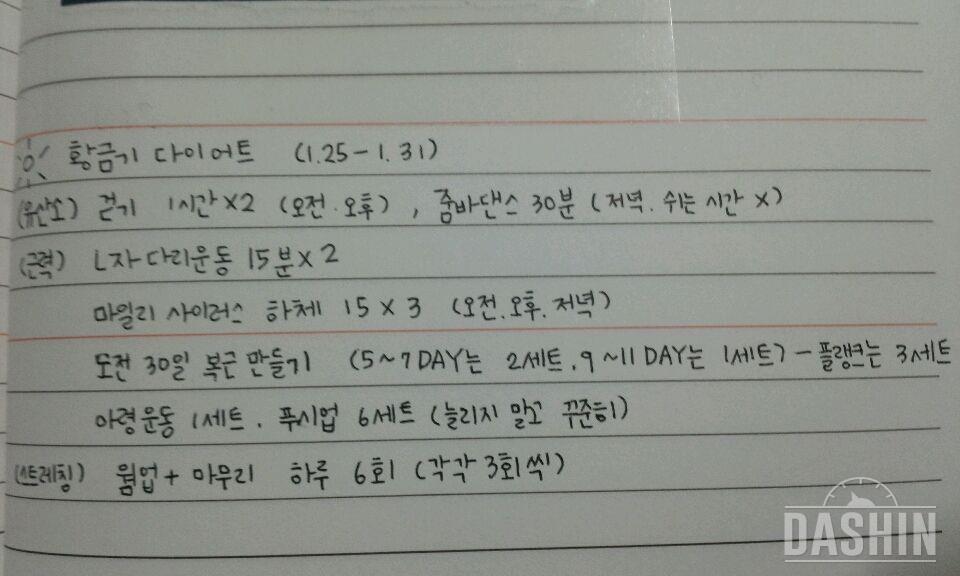 황금기 다이어트 (1.25-1.31)
(유산소) 걷기 1시간×2 (오전.오후), 줌바댄스 30분 (저녁. 쉬는 시간 X)
(근력) L자다리운동 15분×2
마일리 사이러스 하체 15×3 (오전.오후.저녁)
도전 30일 복근 만들기 (5~7DAY는 2세트, 9~11DAY는 1세트) - 플랭크는 3세트
아령운동 1세트. 푸시업 6세트 (늘리지 말고 꾸준히)
(스트레칭) 웜업+마무리 하루 6회 (각각 3회씩)
DASHIN